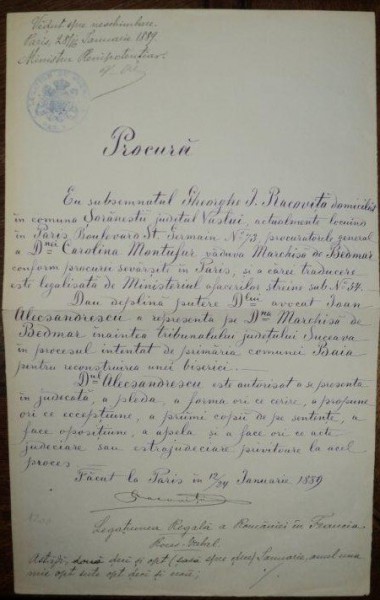 Văzut spre neschimbare.
Paris, 28/16 Ianuarie 1889
Ministru Plenipotențiar.
Procură
Eu subsemnatul Gheorghe I. Racoviță domiciliat
în comuna Sorănesti județul Vaslui, actualmente locuind
în Paris Boulevard St. Germain No 73, procuratorele general
a Dnei Carolina Montufur, văduva Marchisă de Bedmar
conform procurei săvârșite în Paris, și a cărei traducere
este legalisată de Ministeriul afacerilor streine sub No 54.
Dau deplină putere Dlui avocat Ioan
Alecsandrescu a representa pe Dna Marchisă de
Bedmar înaintea tribunalului județului Suceava
în procesul intentat de primăria comunei Baia
pentru reconstruirea unei biserici.
Dnul Alecsandrescu este autorisat a se presenta
în judecată, a pleda, a forma ori ce cerere, a propune
ori ce eccepțiune, a priimi copii de pe sentințe, a
face oposițiuni, a apela și a face ori ce acte
judeciare sau extrajudeciare privitoare la acel
proces
Făcut la Paris în 12/24 Ianuarie 1889
Legațiunea Regală a României în Francia
Astăzi, două deci și opt (șase spre dece) Ianuarie, anul una
mie opt sute opt deci și nouă;